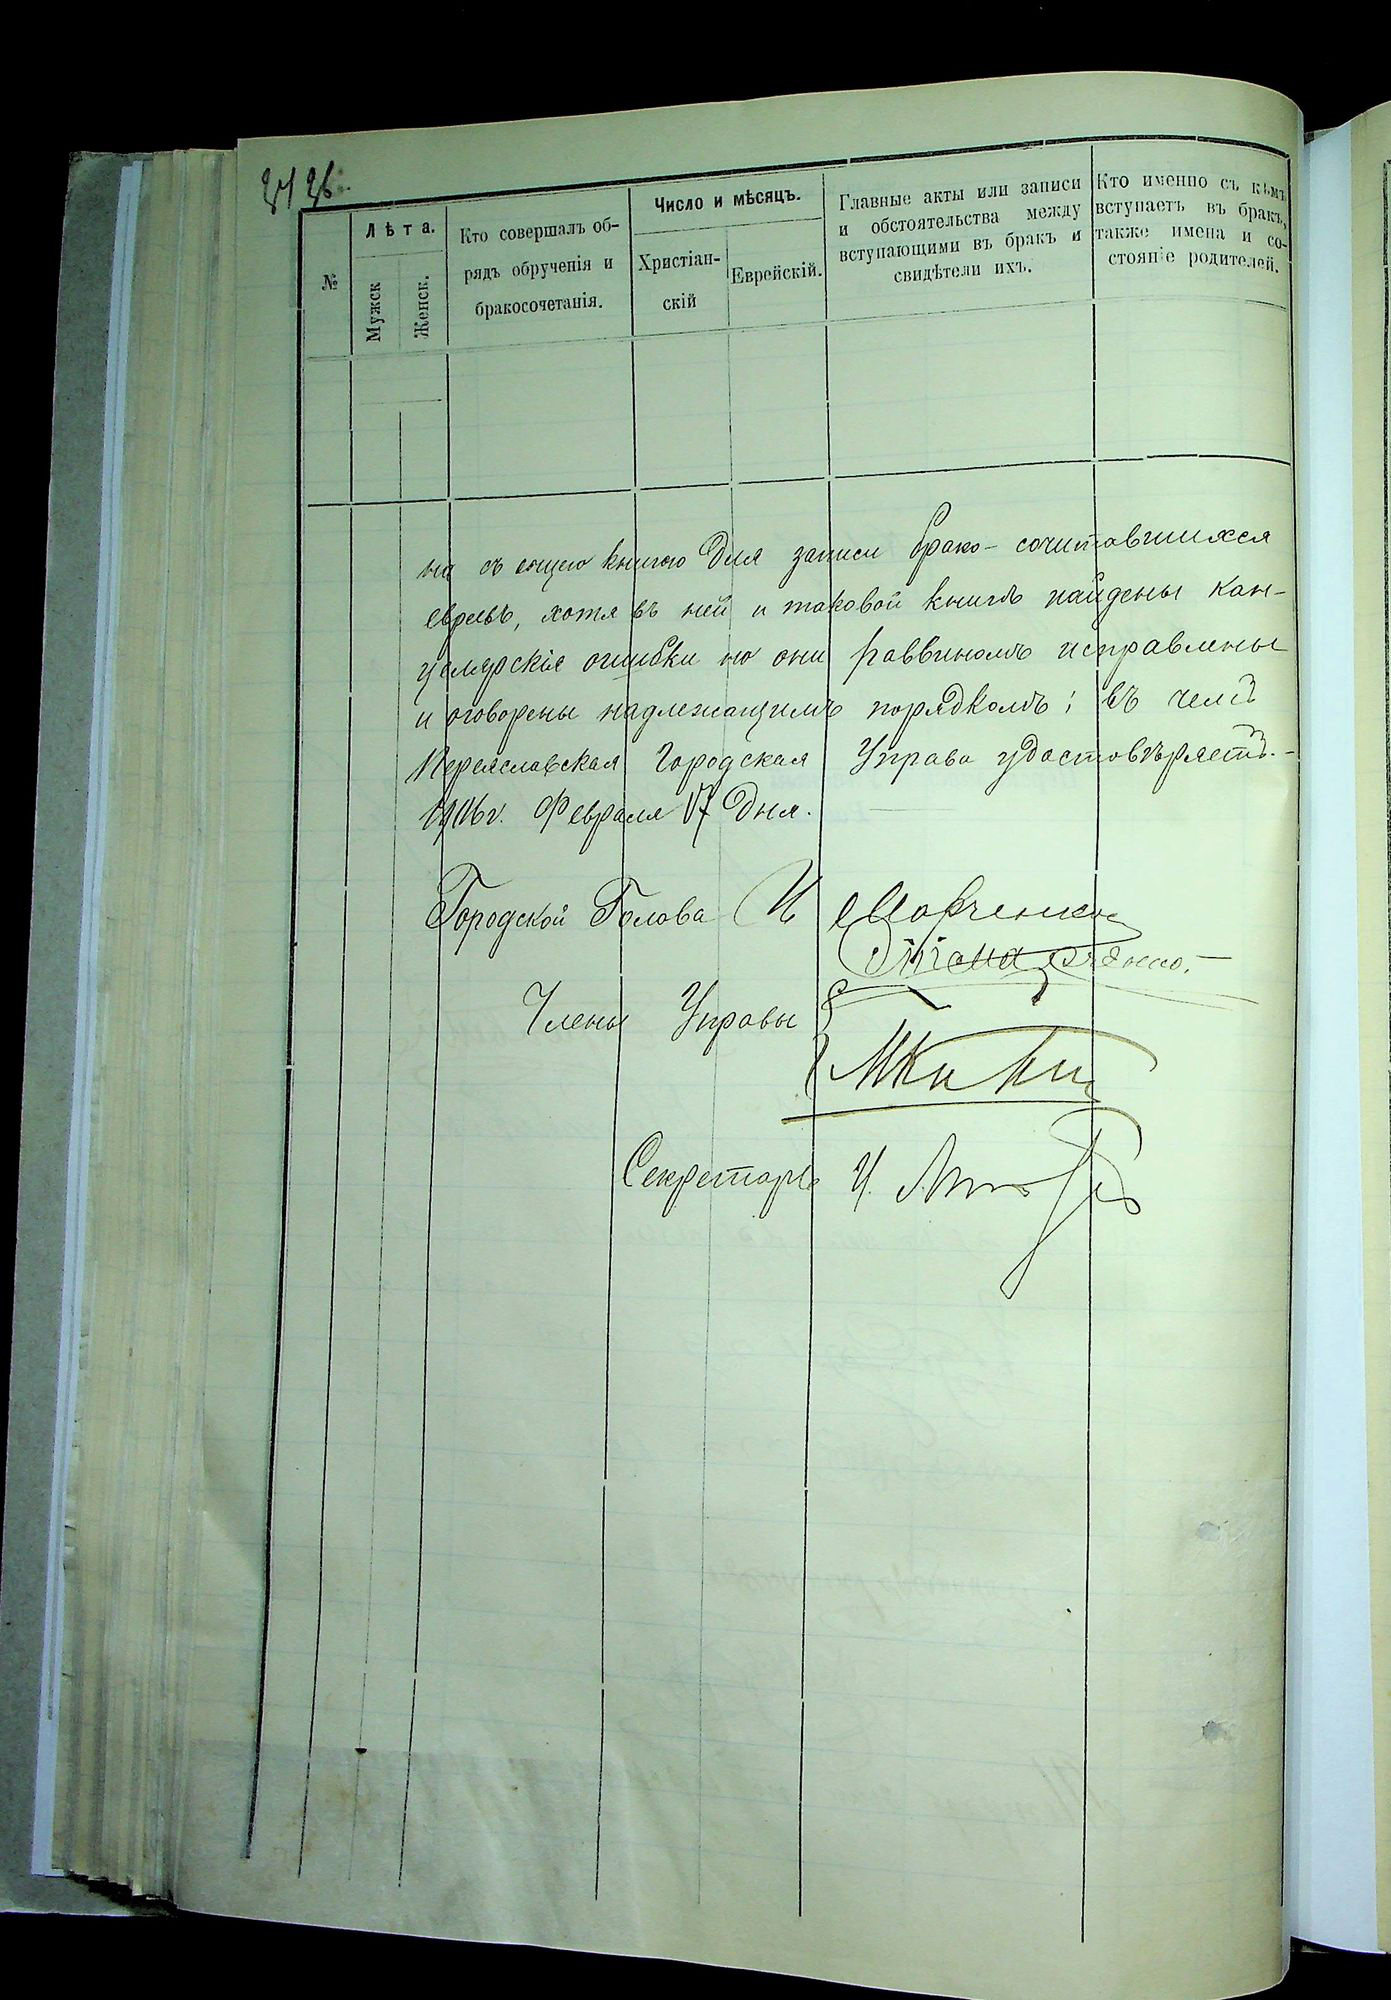 №
Лѣта.
Мужск
Женск.
Кто совершалъ об-
рядъ обрученія и
бракосочетанія.
Число и мѣсяцъ.
Христіан-
скій
Еврейскій.
Главные акты или записи
и обстоятельства между
вступающими въ бракъ и
свидѣтели ихъ.
Кто именно съ кѣмъ
вступаетъ въ бракъ,
также имена и со-
стояніе родителей.
на съ общею книгою для записи брако-сочитавшихся
евреевъ, хотя въ ней и таковой книгѣ найдены кан-
целярскія ошибки но они раввиномъ исправлены
и оговорены надлежащимъ порядкомъ; въ чемъ
Переяславская Городская Управа удостовѣряетъ.-
Февраля 17 дня.
Городской Голова
Члены Управы
Секретарь И.